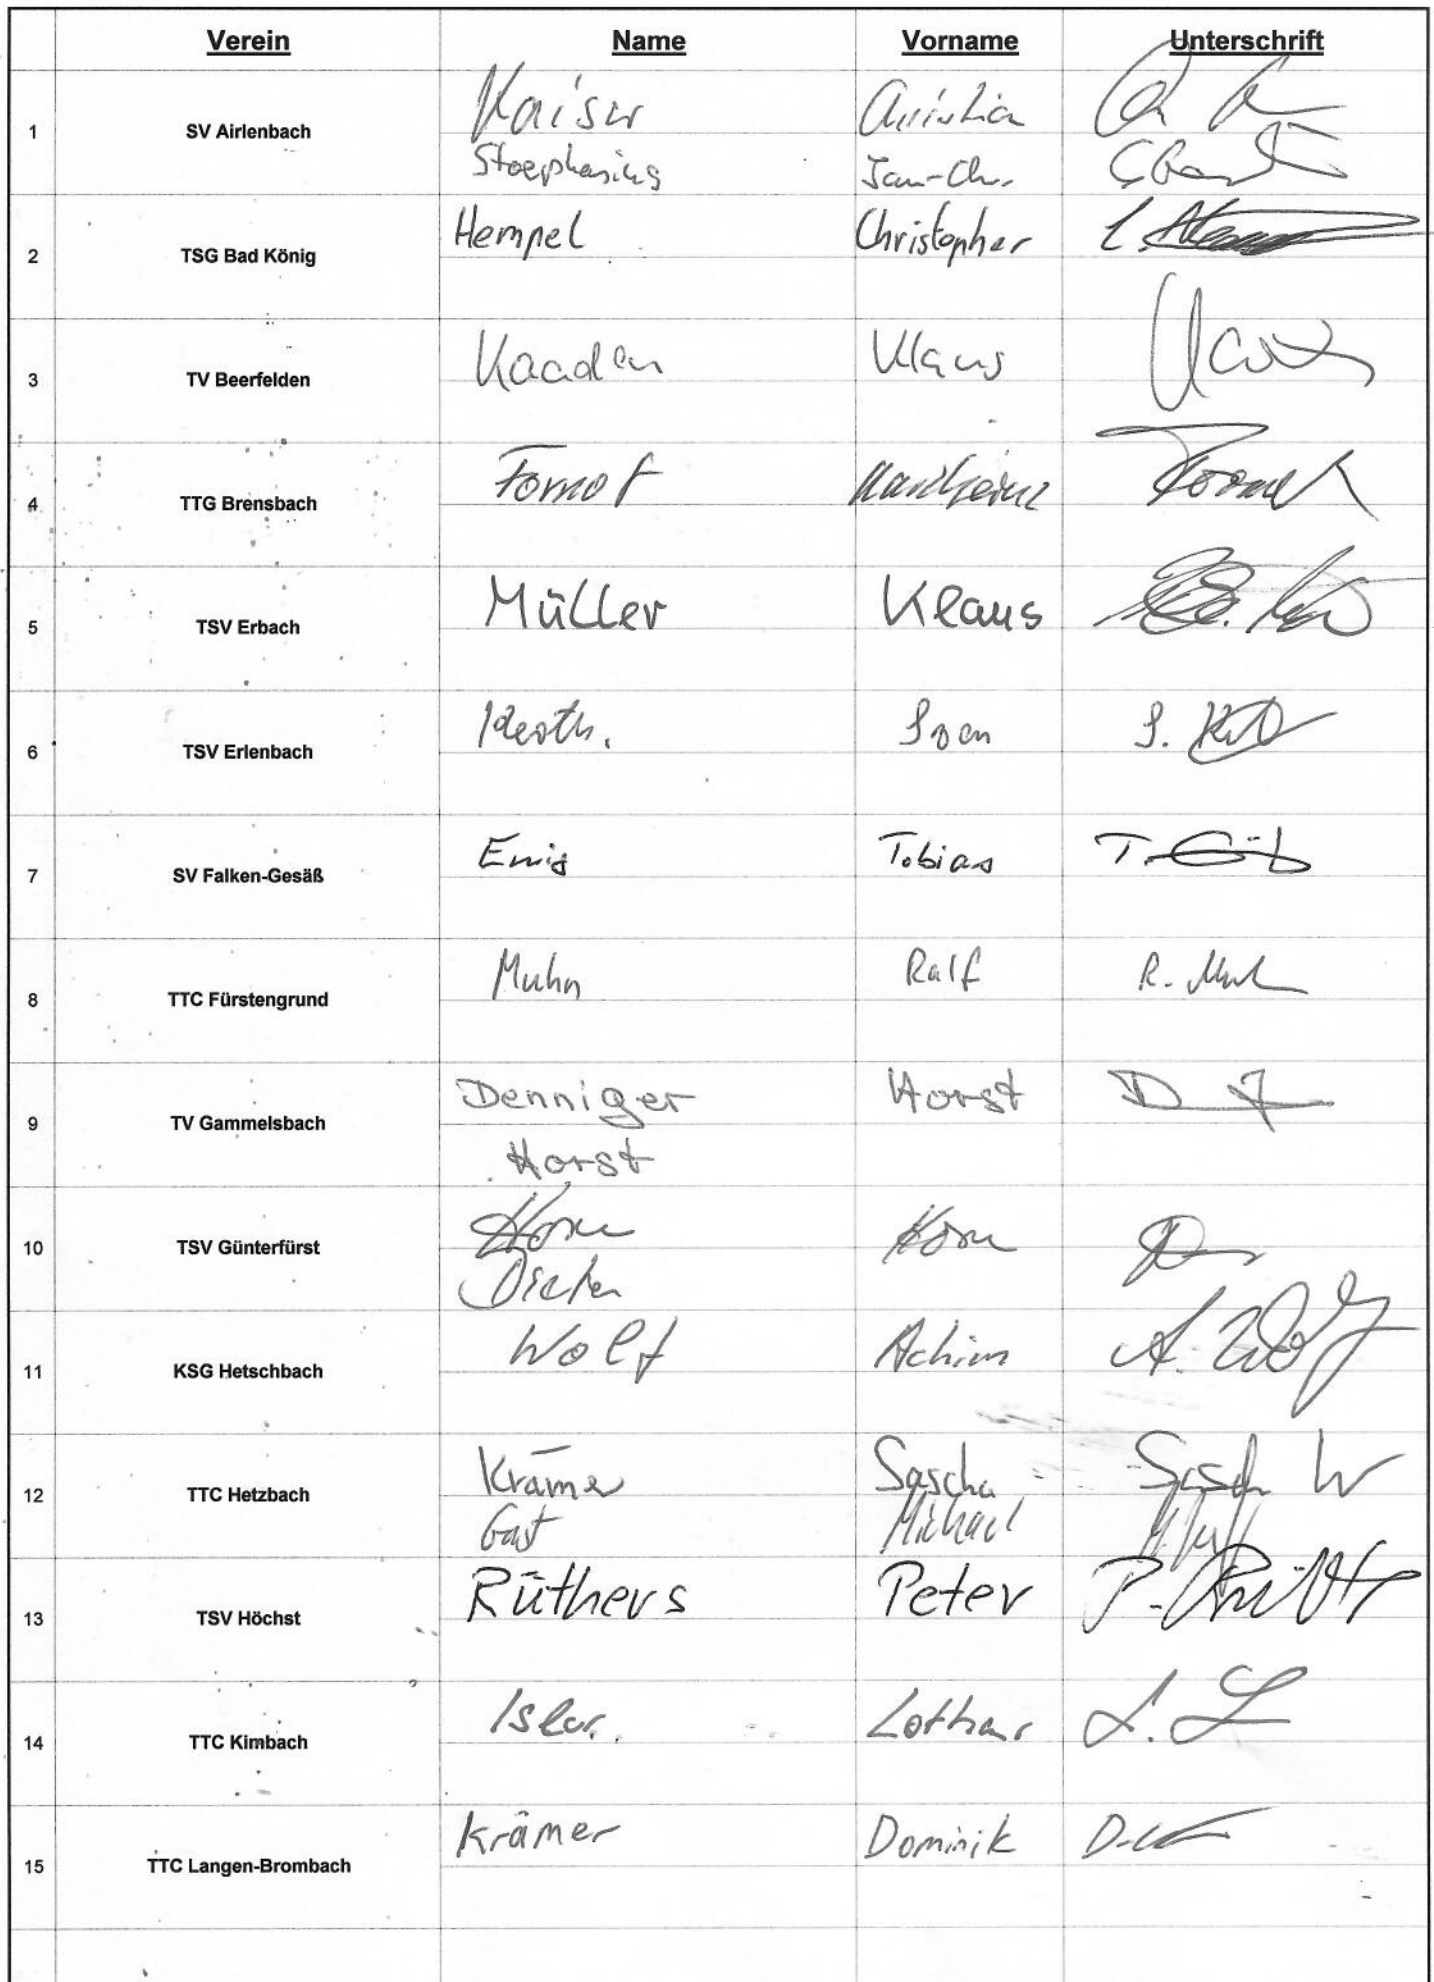 Verein Name Vorname Unterschrift
1 SV Airlenbach Kaiser Christian
Stoephasius Jan-Chr.
2 TSG Bad König Hempel Christopher
3 TV Beerfelden Kaaden Klaus
4 TTG Brensbach Fornof Karlheinz
5 TSV Erbach Müller Klaus
6 TSV Erlenbach Sven S.
7 SV Falken-Gesäß Emig Tobias T.
8 TTC Fürstengrund Muhn Ralf R. Muhn
9 TV Gammelsbach Denniger Horst
Horst
10 TSV Günterfürst Horn Horn
Dieter
11 KSG Hetschbach Wolf Achim A. Wolf
12 TTC Hetzbach Krämer Sascha Sascha
Gast Michael
13 TSV Höchst Rüthers Peter P. Rüthers
14 TTC Kimbach Lothar L.
15 TTC Langen-Brombach Krämer Dominik